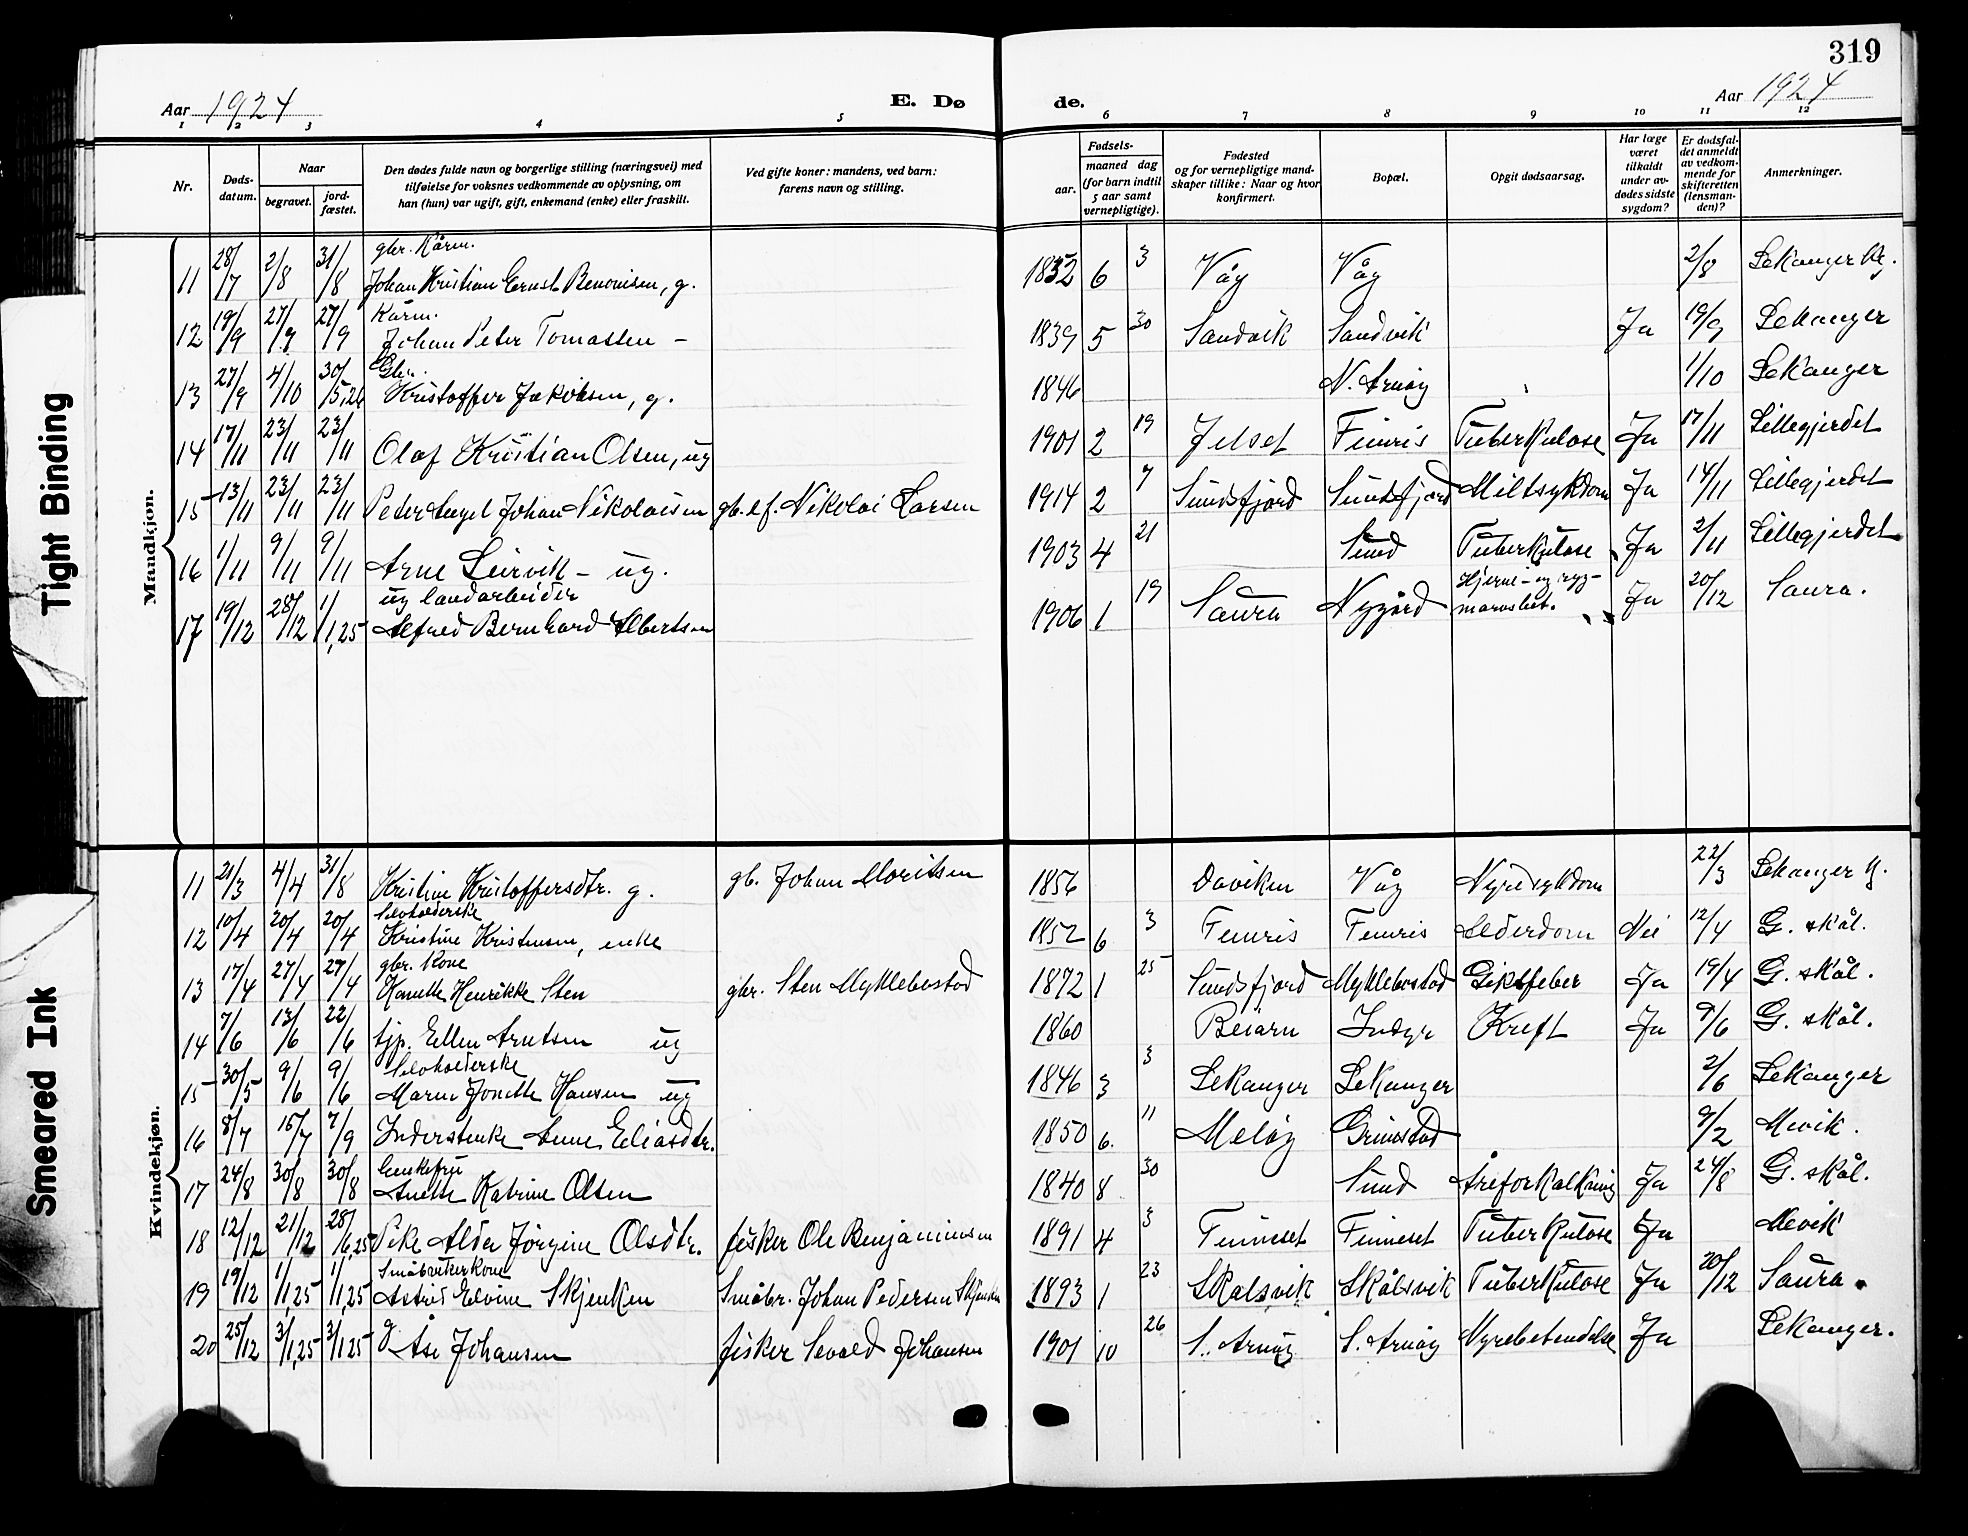 319
Aar 1924
E. Dø
de.
Aar 1924
1 2 3 4 5 6 7 8 9 10 11 12
Nr.
Døds-
datum.
Naar
begravet.
jord-
fæstet.
Den dødes fulde navn og borgerlige stilling (næringsvei) med
tilføielse for voksnes vedkommende av oplysning, om
han (hun) var ugift, gift, enkemand (enke) eller fraskilt.
Ved gifte koner: mandens, ved barn:
farens navn og stilling.
Fødsels-
aar.
maaned dag
(for barn indtil
5 aar samt
vernepligtige).
Fødested
og for vernepligtige mand-
skaper tillike: Naar og hvor
konfirmert.
Bopæl.
Opgit dødsaarsag.
Har læge
været
tilkaldt
under av-
dødes sidste
sygdom?
Er dødsfal-
det anmeldt
av vedkom-
mende for
skifteretten
(lensman-
den)?
Anmerkninger.
Mandkjøn.
gbr. Kårm.
11 28/7 2/8 31/8 Johan Kristian Ernst Benonisen, g. 1832 6 3 Våg Våg 2/8 Sekanger kg.
Kårm.
12 19/9 27/9 27/9 Johan Peter Tomassen – 1839 5 30 Sandvik Sandvik Ja 19/9 Sekanger
13 27/9 4/10 30/5,26 Kristoffer Jakobsen, g. 1846 N. Arnøy 1/10 Sekanger
14 17/11 23/11 23/11 Olaf Kristian Olsen, ug 1901 2 19 Jelset Finnris Tuberkulose Ja 17/11 Lillegjerdet
15 13/11 23/11 23/11 Peter Johan Nikolaisen gb. ef. Nikolai Larsen 1914 2 7 Sundsfjord Sundsfjord Miltsykdom Ja 14/11 Lillegjerdet
16 1/11 9/11 9/11 Arne Leirvik – ug. 1903 4 21 Sund Tuberkulose Ja 2/11 Lillegjerdet
ug landarbeider
17 19/12 28/12 1/1,25 Alfred Bernhard Albertsen 1906 1 19 Saura Nygård Hjerne- og ryg-
Ja 20/12 Saura.
Kvindekjøn.
11 21/3 4/4 31/8 Kristine Kristoffersdtr. g. gb. Johan Moritsen 1856 Daviken Våg Nyresykdom 22/3 Sekanger kg.
Selvholderske
12 10/4 20/4 20/4 Kristine Kristensen, enke 1852 6 3 Finnris Finnris Alderdom Nei 12/4 G. skål.
gbr. kone
13 17/4 27/4 27/4 Hanette Henrikke Sten gbr. Sten Myklebostad 1872 1 25 Sundsfjord Myklebostad Giktfeber Ja 19/4 G. skål.
14 7/6 13/6 22/6 tjp. Ellen Arntsen ug 1860 Beiarn Indyr Kreft Ja 9/6 G. skål.
Selvholderske
15 30/5 9/6 9/6 Maren Jonette Hansen ug 1846 3 3 Sekanger Sekanger 2/6 Sekanger
16 8/7 15/7 7/9 Inderstenke Anne Eliasdtr. 1850 6. 11 Meløy Grimstad 9/2 Mevik.
17 24/8 30/8 30/8 Anette Katrine Olsen 1840 8 30 Sund Åreforkalkning Ja 24/8 G. skål.
18 12/12 21/12 28/6,25 Pike Alda Jørgine Olsdtr. fisker Ole Benjaminsen 1891 4 3 Finneset Finneset Tuberkulose Ja Mevik
Småbrukerkone
19 19/12 1/1,25 1/1,25 Astrid Elvine Skjenken Småbr. Johan Pedersen Skjenken 1893 1 23 Skålsvik Skålsvik Tuberkulose Ja 20/12 Saura.
20 25/12 3/1,25 3/1,25 g Åse Johansen fisker Sevald Johansen 1901 10 26 S. Arnøy S. Arnøy Nyrebetendelse Ja Sekanger.
Tight Binding
Smeared Ink